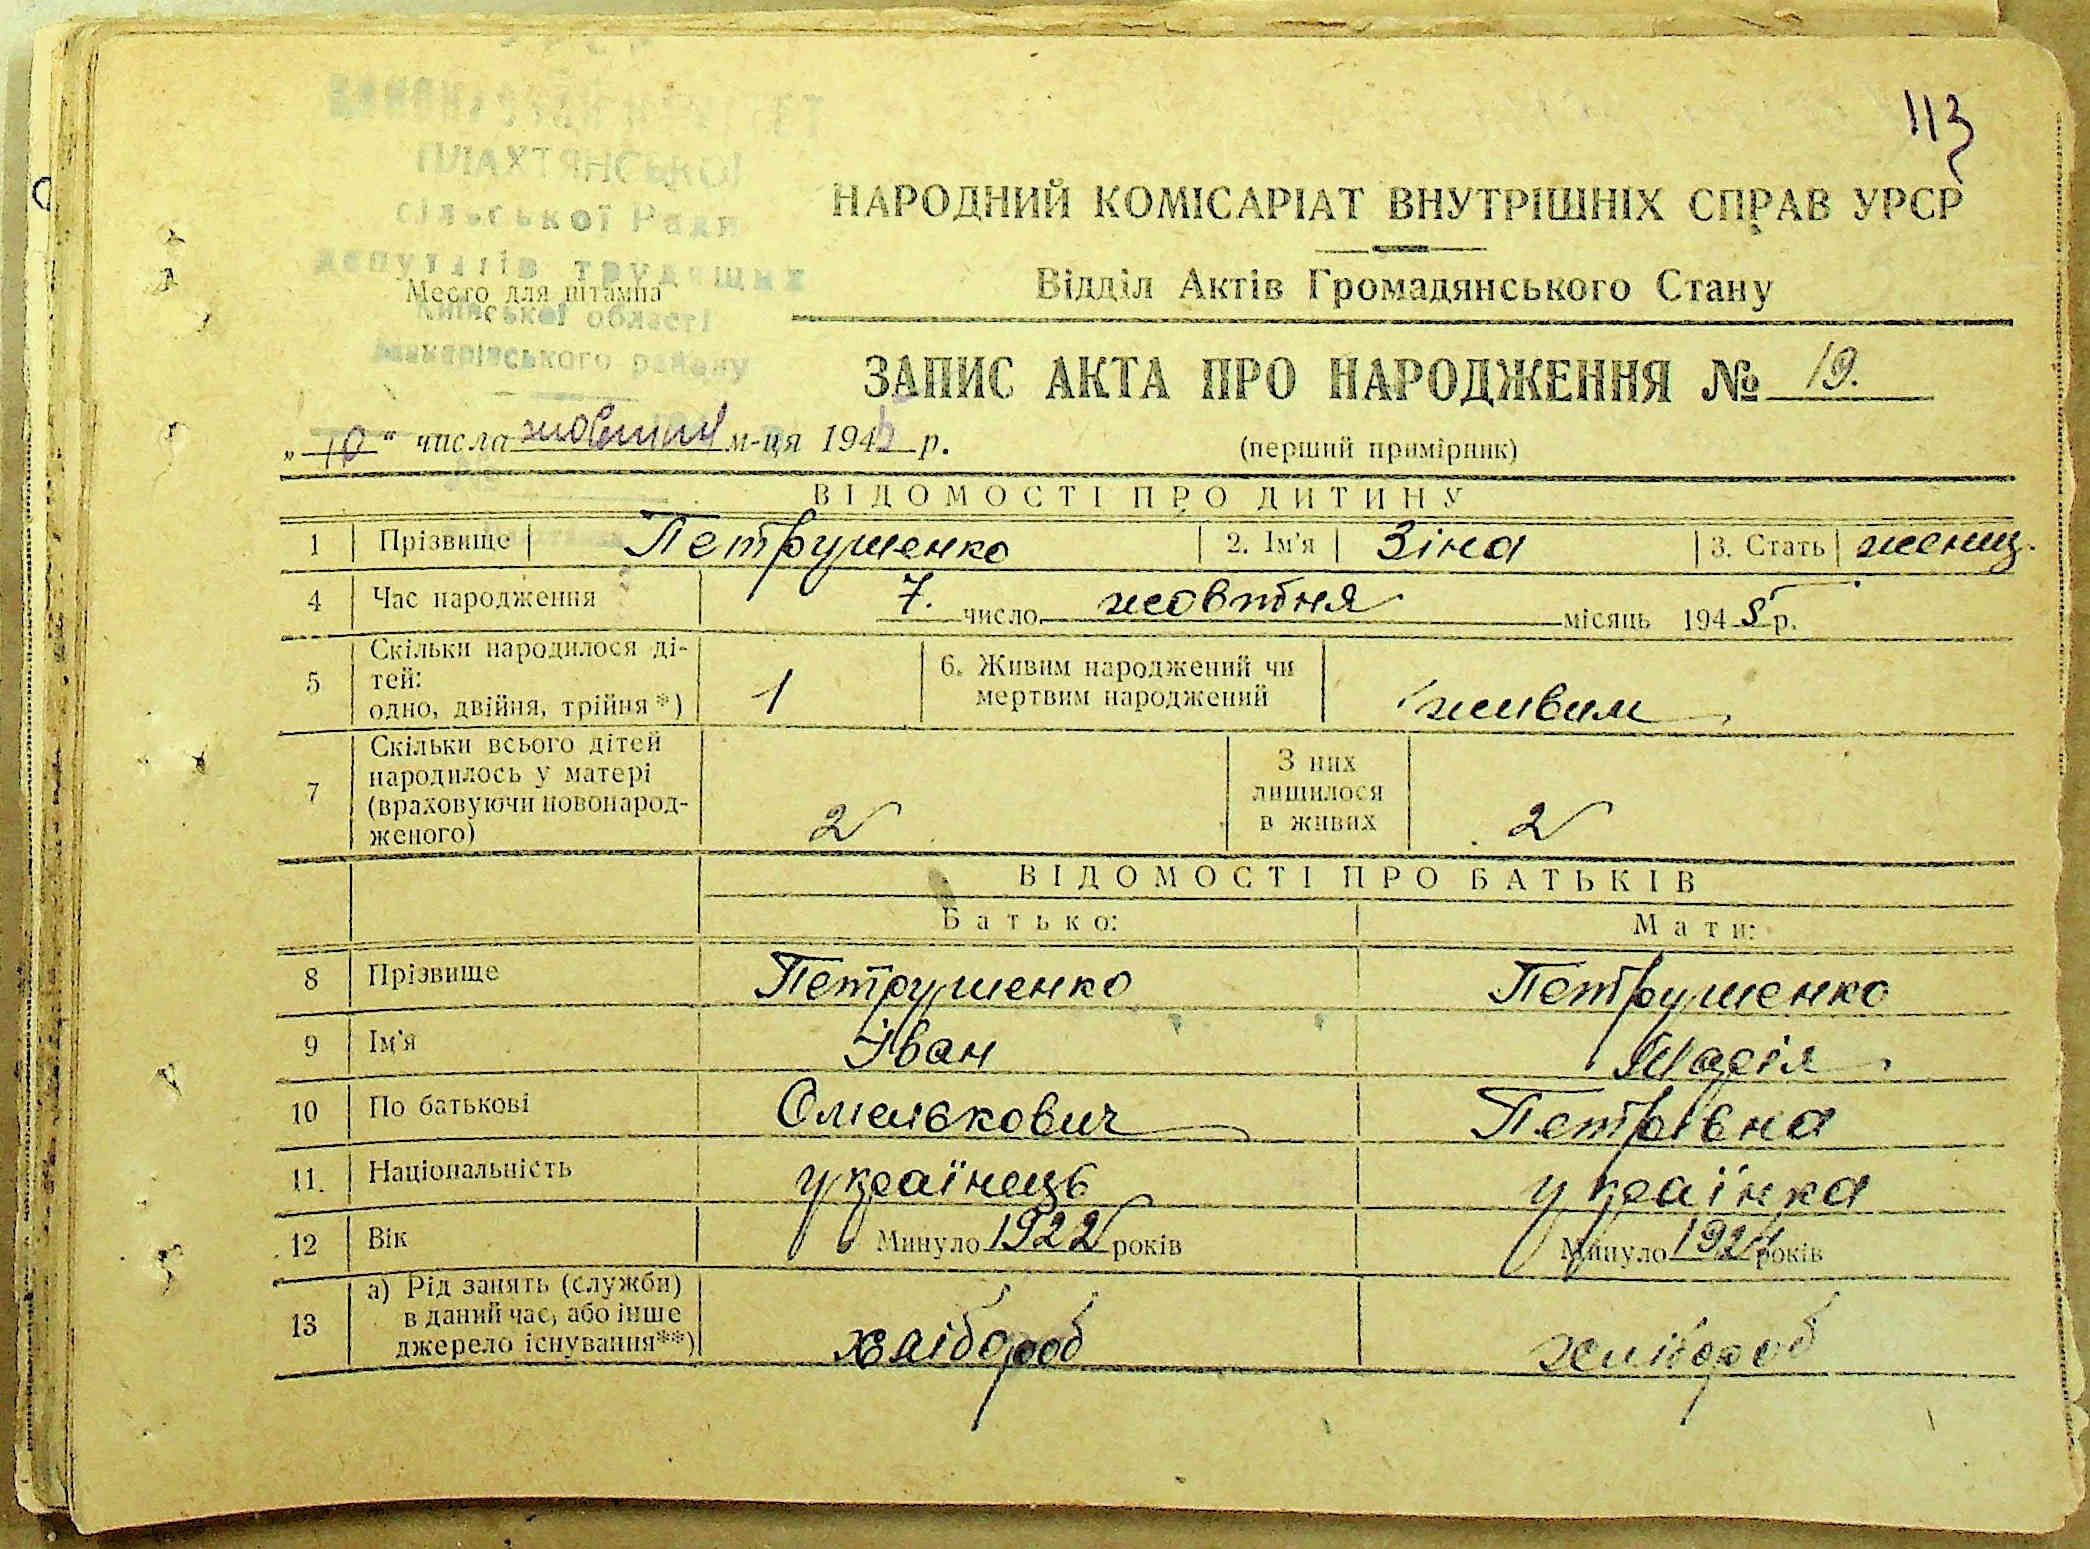 113
ПЛАХТЯНСЬКОЇ
сільської Ради
депутатів трудящих
Место для штампа
Київської області
Макарівського району
НАРОДНИЙ КОМІСАРІАТ ВНУТРІШНІХ СПРАВ УРСР
Відділ Актів Громадянського Стану
ЗАПИС АКТА ПРО НАРОДЖЕННЯ № 19.
„10“ числа жовтня м-ця 1945 р.
(перший примірник)
ВІДОМОСТІ ПРО ДИТИНУ
1 Прізвище Петрушенко 2. Ім'я Зіна 3. Стать женщ.
4 Час народження 7. число жовтня місяць 1945 р.
5 Скільки народилося ді-
тей:
одно, двійня, трійня*) 1 6. Живим народжений чи
мертвим народжений живим
7 Скільки всього дітей
народилось у матері
(враховуючи новонарод-
женого) 2 З них
лишилося
в живих 2
ВІДОМОСТІ ПРО БАТЬКІВ
Батько: Мати:
8 Прізвище Петрушенко Петрушенко
9 Ім'я Іван Марія
10 По батькові Омелькович Петрівна
11. Національність українець українка
12 Вік Минуло 1922 років Минуло 1924 років
13 а) Рід занять (служби)
в даний час, або інше
джерело існування**) хлібороб хлібороб